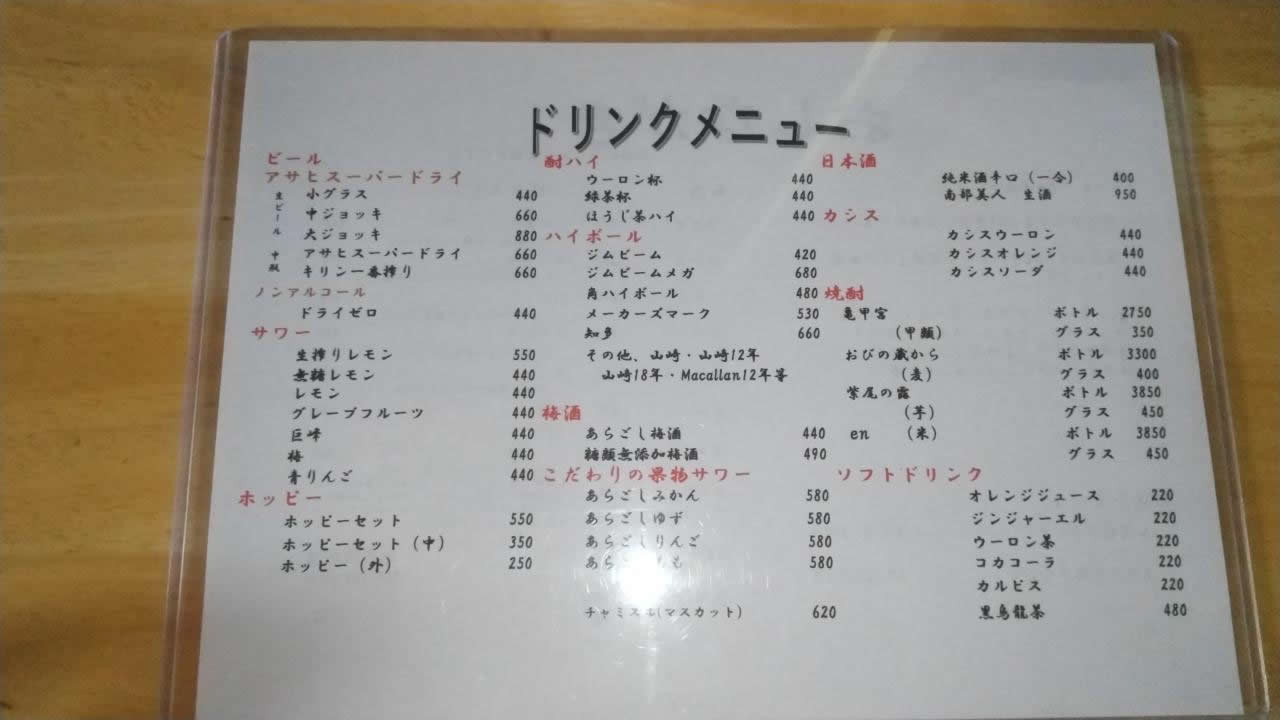 ドリンクメニュー
ビール
アサヒスーパードライ
生ビール
小グラス 440
中ジョッキ 660
大ジョッキ 880
中瓶
アサヒスーパードライ 660
キリン一番搾り 660
ノンアルコール
ドライゼロ 440
サワー
生搾りレモン 550
無糖レモン 440
レモン 440
グレープフルーツ 440
巨峰 440
梅 440
青りんご 440
ホッピー
ホッピーセット 550
ホッピーセット（中） 350
ホッピー（外） 250
酎ハイ
ウーロン杯 440
緑茶杯 440
ほうじ茶ハイ 440
ハイボール
ジムビーム 420
ジムビームメガ 680
角ハイボール 480
メーカーズマーク 530
知多 660
その他、山崎・山崎12年
山崎18年・Macallan12年等
梅酒
あらごし梅酒 440
糖類無添加梅酒 490
こだわりの果物サワー
あらごしみかん 580
あらごしゆず 580
あらごしりんご 580
あら も 580
チャミスル(マスカット) 620
日本酒
純米酒辛口（一合） 400
南部美人 生酒 950
カシス
カシスウーロン 440
カシスオレンジ 440
カシスソーダ 440
焼酎
亀甲宮 ボトル 2750
（甲類） グラス 350
おびの蔵から ボトル 3300
（麦） グラス 400
紫尾の露 ボトル 3850
（芋） グラス 450
en （米） ボトル 3850
グラス 450
ソフトドリンク
オレンジジュース 220
ジンジャーエル 220
ウーロン茶 220
コカコーラ 220
カルピス 220
黒烏龍茶 480